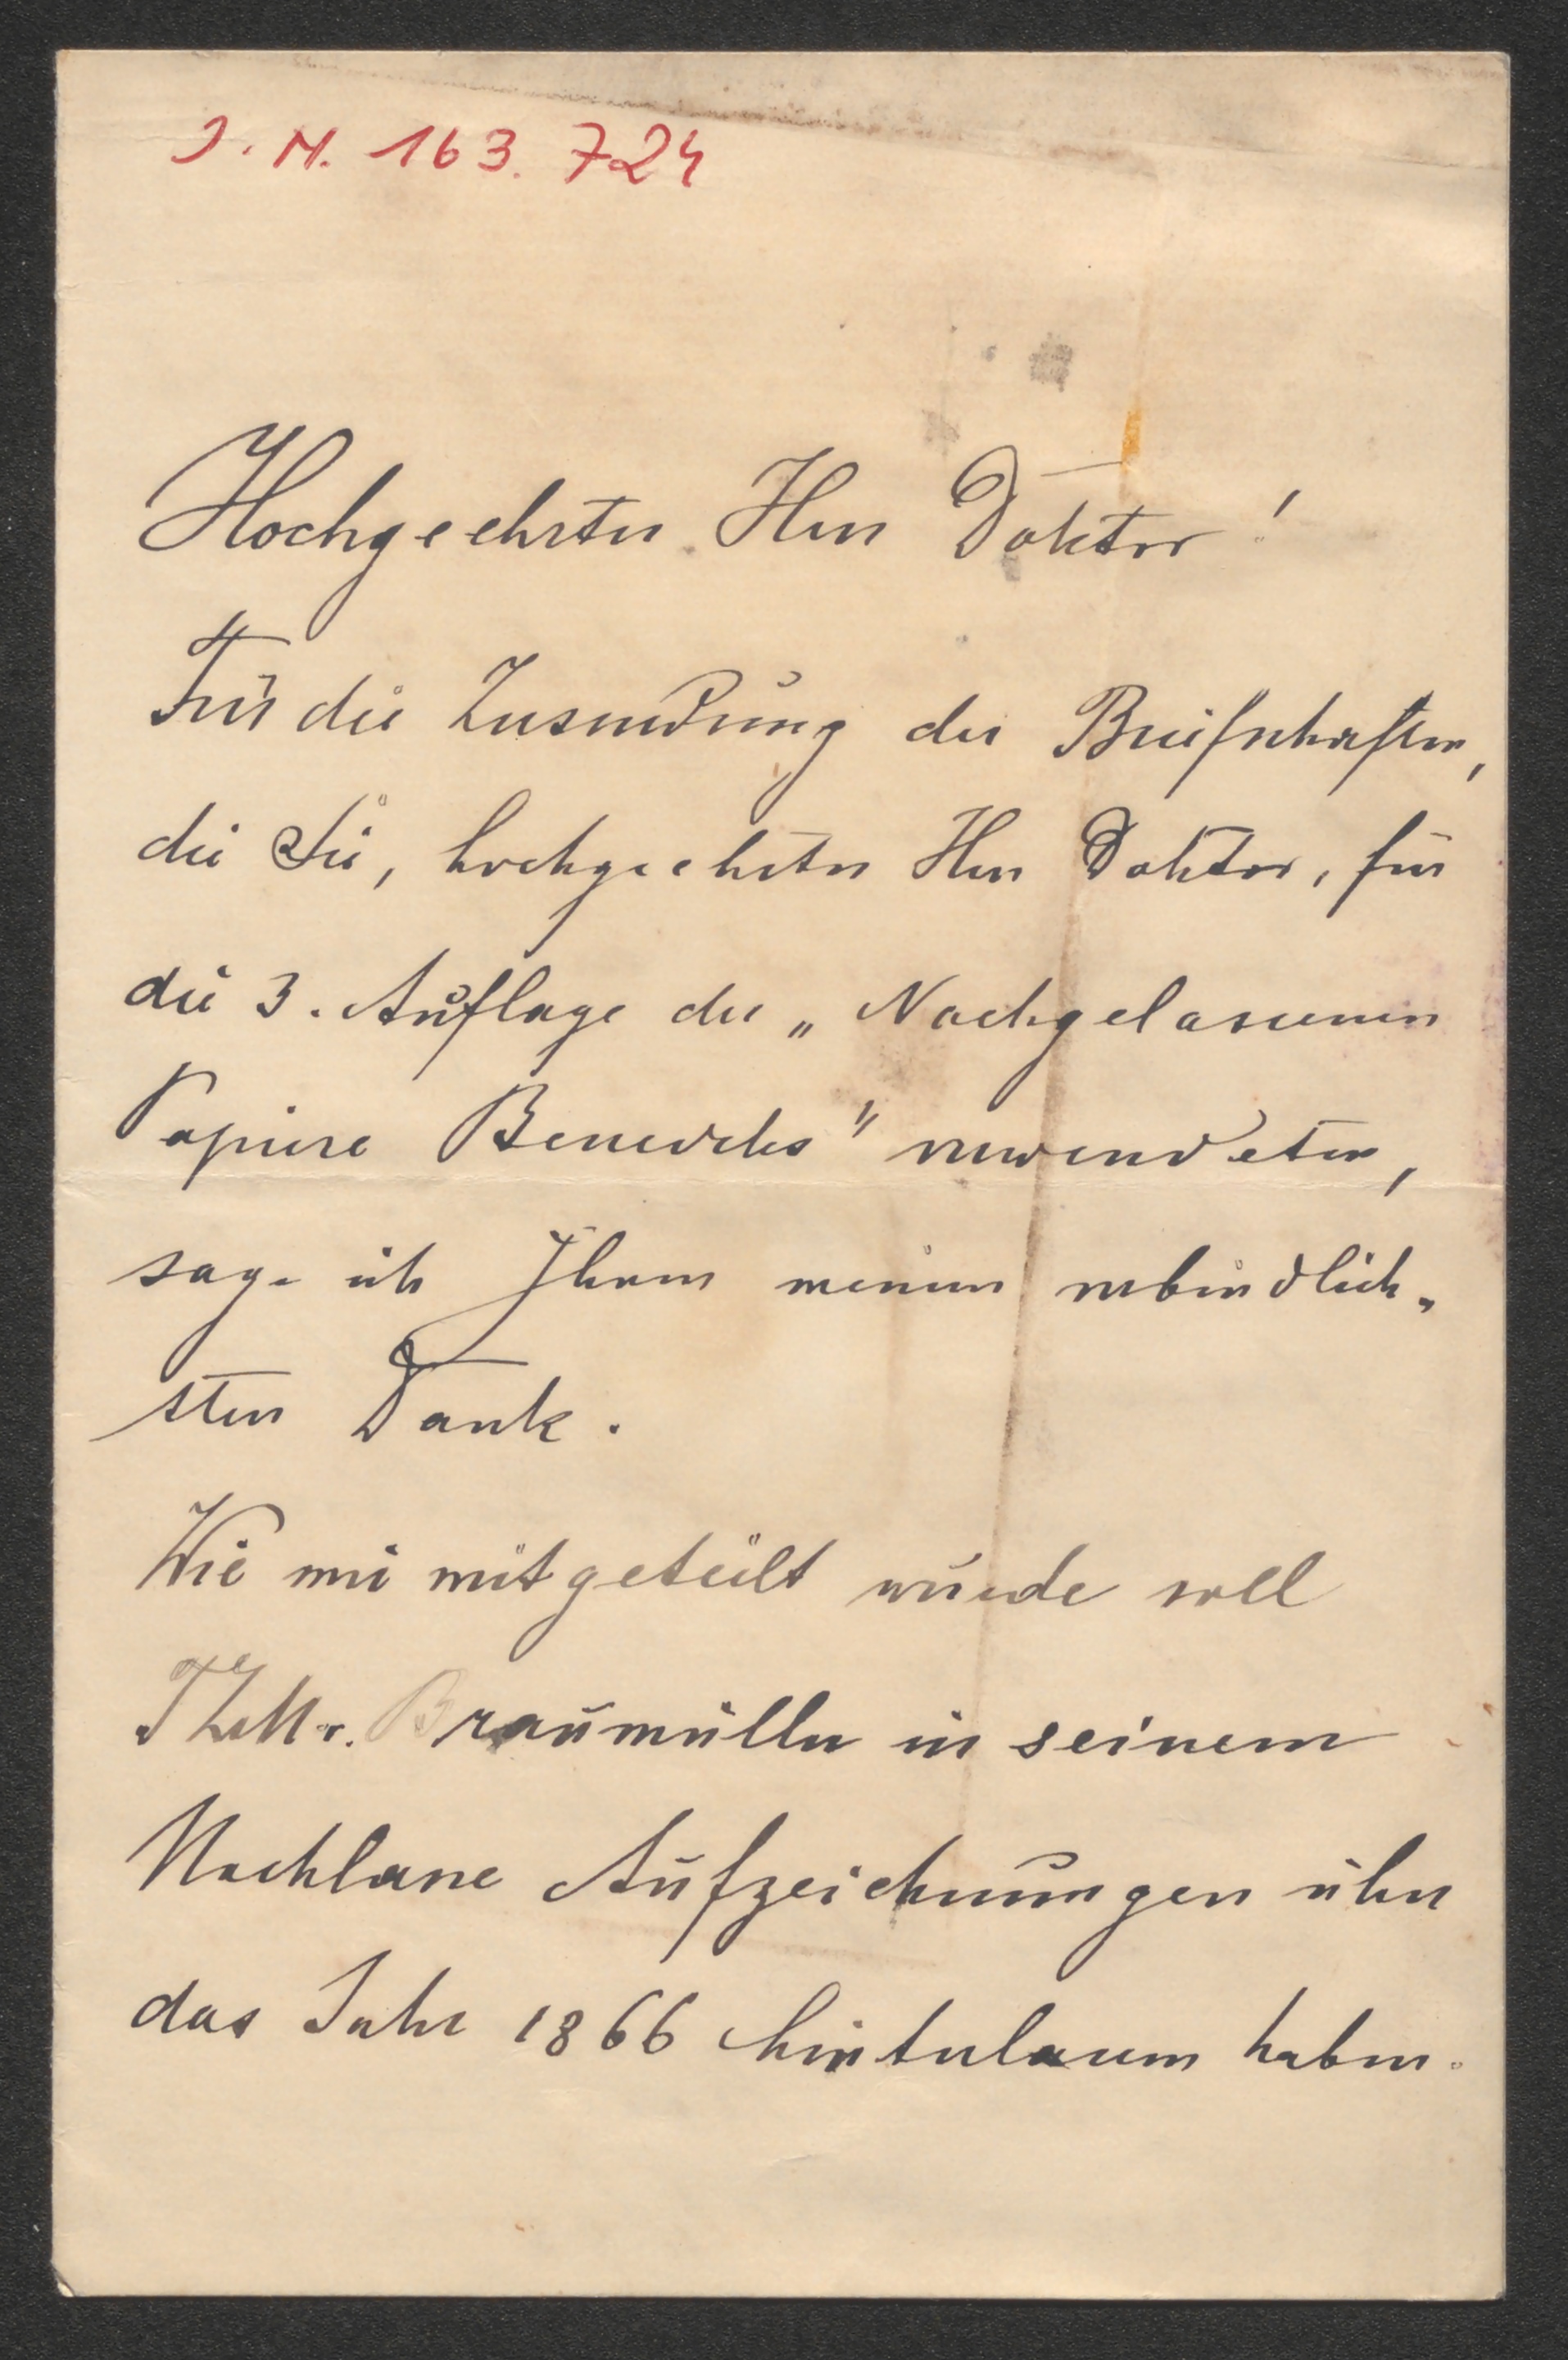 J. N. 163.724
Hochgeehrter Herr Doktor!
Für die Zusendung der Briefschaften,
die Sie, hochgeehrter Herr Doktor, für
die 3. Auflage der „Nachgelassenen
Papiere Benedeks" verwendeten,
sage ich Ihnen meinen verbindlich-
sten Dank.
Wie mir mitgeteilt wurde soll
Braumüller in seinem
Nachlasse Aufzeichnungen über
das Jahr 1866 hinterlassen haben.